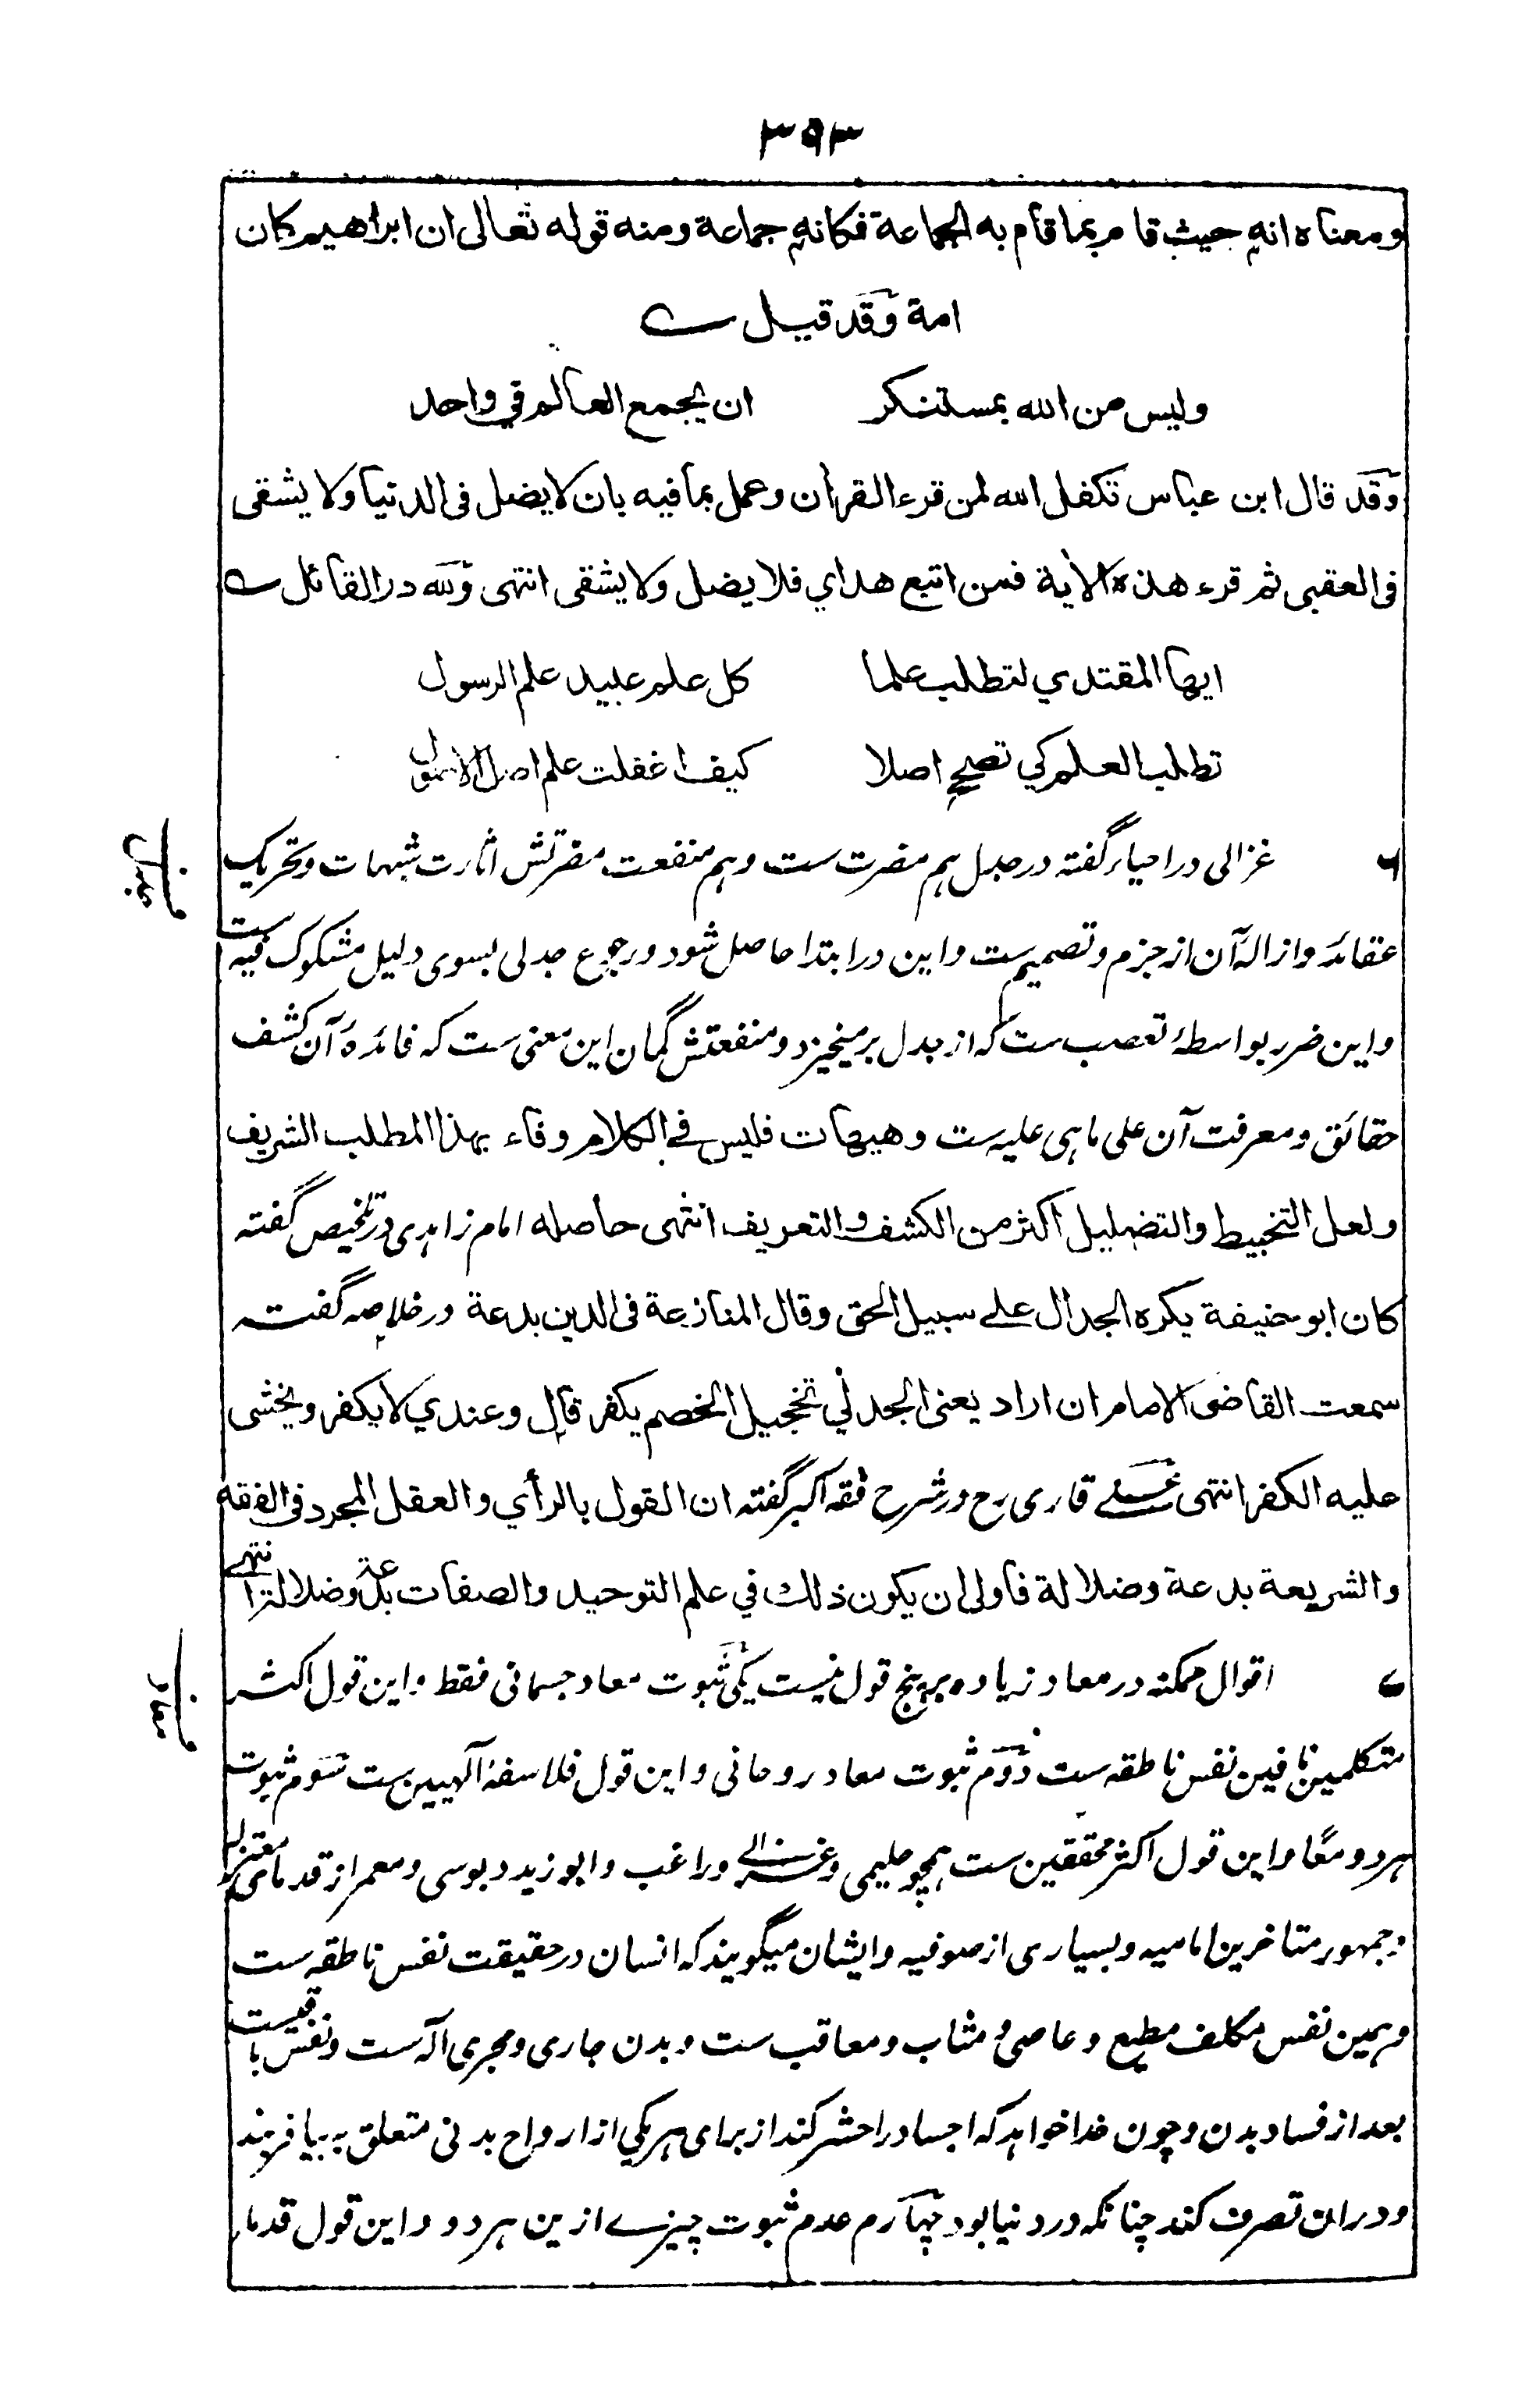 ۳۹۳
ومعناه انه حيث قام بما قام به الجماعة فكانه جماعة ومنه قوله تعالى ان ابراهيم كان
امة وقد قيل ے
وليس من الله بمستنكر ان يجمع العالم في واحد
وقد قال ابن عباس تكفل الله لمن قرء القرأن وعمل بما فيه بان لا يضل فى الدنيا ولا يشقى
فى العقبى ثم قرء هذه الأية فمن اتبع هداي فلا يضل ولا يشقى انتهى ولله در القائل ے
ايها المقتدي لتطلب علما كل علم عبيد علم الرسول
تطلب العلم كي تصحح اصلا كيف اغفلت علم اصل الاصول
۶ غزالی در احیاء گفته در جدل ہم مضرت ست وہم منفعت مضرتش اثارت شبہات وتحریک
ف جدل
عقائد وازالۂ آن از جزم وتصمیم ست واین در ابتدا حاصل شود ورجوع جدلی بسوی دلیل مشکوک فیہ ست
واین ضرر بواسطۂ تعصب ست کہ از جدل برمیخیزد ومنفعتش گمان این معنی ست کہ فائدۂ آن کشف
حقائق ومعرفت آن علی ما ہی علیہ ست وهيهات فليس في الكلام وفاء بهذا المطلب الشريف
ولعل التخبيط والتضليل اكثر من الكشف والتعريف انتهى حاصله امام زاہدی در تلخیص گفته
كان ابو حنيفة يكره الجدال على سبيل الحق وقال المنازعة فى الدين بدعة در خلاصہ گفتہ
سمعت القاضى الامام ان اراد يعنى الجدلي تخجيل الخصم يكفر قال وعندي لا يكفر ويخشى
عليه الكفر انتهى علے قاری رح در شرح فقہ اکبر گفته ان القول بالرأي والعقل المجرد فى الفقه
والشريعة بدعة وضلالة فأولى ان يكون ذلك في علم التوحيد والصفات بدعة وضلالة انتہے
۷ اقوال ممکنہ در معاد زیادہ بر پنج قول نیست یکی ثبوت معاد جسمانی فقط واین قول اکثر
ف معاد
متکلمین نافین نفس ناطقہ ست دوم ثبوت معاد روحانی واین قول فلاسفۂ آلہیین ست سوم ثبوت
ہر دو معًا واین قول اکثر محققین ست ہمچو حلیمی وغزالے وراغب وابو زید دبوسی ومعمر از قدمای معتزلہ
وجمہور متاخرین امامیہ وبسیاری از صوفیہ وایشان میگویند کہ انسان در حقیقت نفس ناطقہ ست
وہمین نفس مکلف مطیع وعاصی و مثاب ومعاقب ست وبدن جاری ومجری آلہ ست ونفس باقیست
بعد از فساد بدن وچون خدا خواہد کہ اجساد را حشر کند از برای ہر یکی از ارواح بدنی متعلق بہ بیافریند
ودران تصرف کند چنانکہ در دنیا بود چہارم عدم ثبوت چیزے ازین ہر دو واین قول قدماء